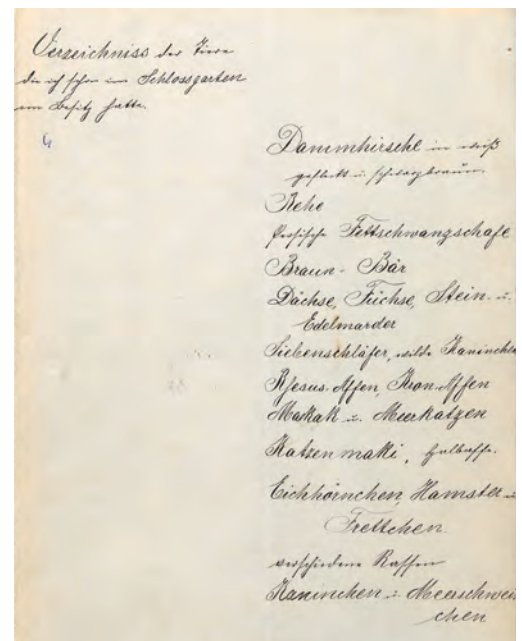 Verzeichniss der Tiere
die ich schon im Schlossgarten
im Besitz hatte.
Dammhirsche in weiß
gefleckt u. schwarzbraun.
Rehe
Persische Fettschwanzschafe
Braun-Bär
Dächse, Füchse, Stein- u.
Edelmarder
Siebenschläfer, wilde Kaninchen
Rhesus-Affen, Kron-Affen
Makak u. Meerkatzen
Katzenmaki, Halbaffe.
Eichhörnchen, Hamster u.
Frettchen.
verschiedene Rassen
Kaninchen u. Meerschwein
chen